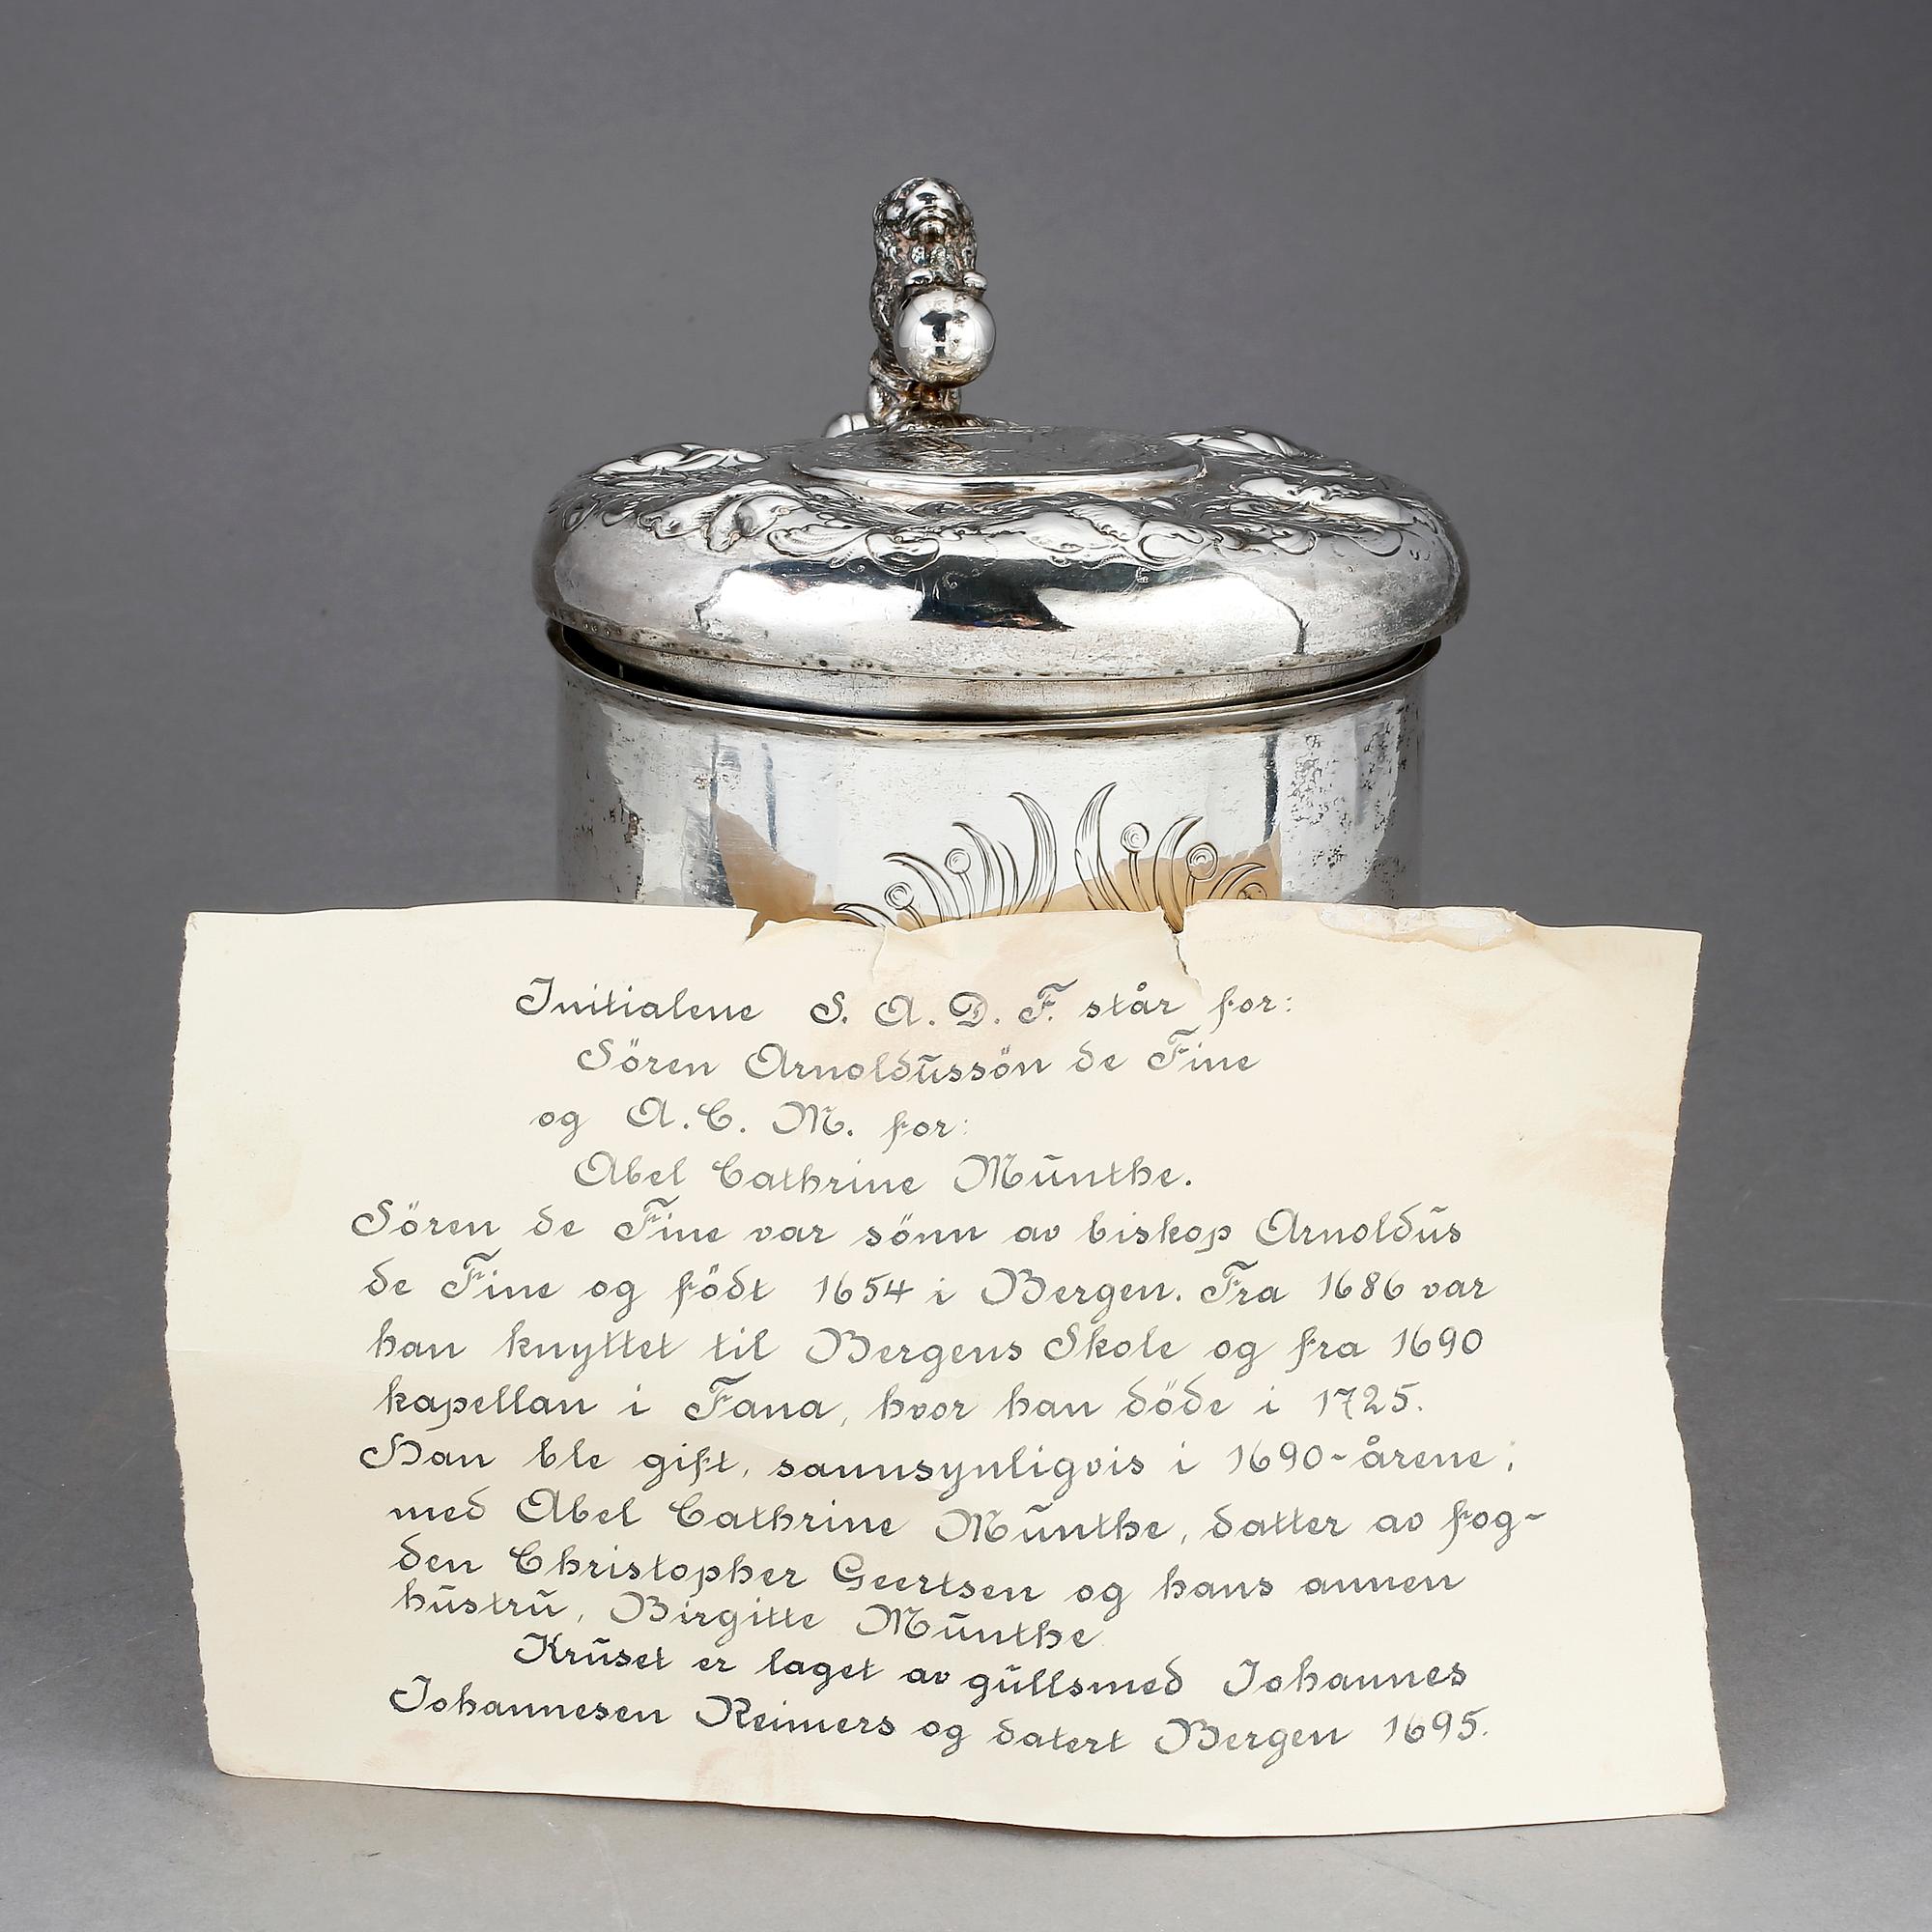 Initialene S. A. D. F. står for:
Sören Arnoldūssön de Fine
og A. C. M. for:
Abel Cathrine Mūnthe.
Sören de Fine var sönn av biskop Arnoldūs
de Fine og födt 1654 i Bergen. Fra 1686 var
han knyttet til Bergens Skole og fra 1690
kapellan i Fana, hvor han döde i 1725.
Han ble gift, sannsynligvis i 1690-årene,
med Abel Cathrine Mūnthe, datter av fog-
den Christopher Geertsen og hans annen
hūstrū, Birgitte Mūnthe
Krūset er laget av gūllsmed Johannes
Johannesen Reimers og datert Bergen 1695.